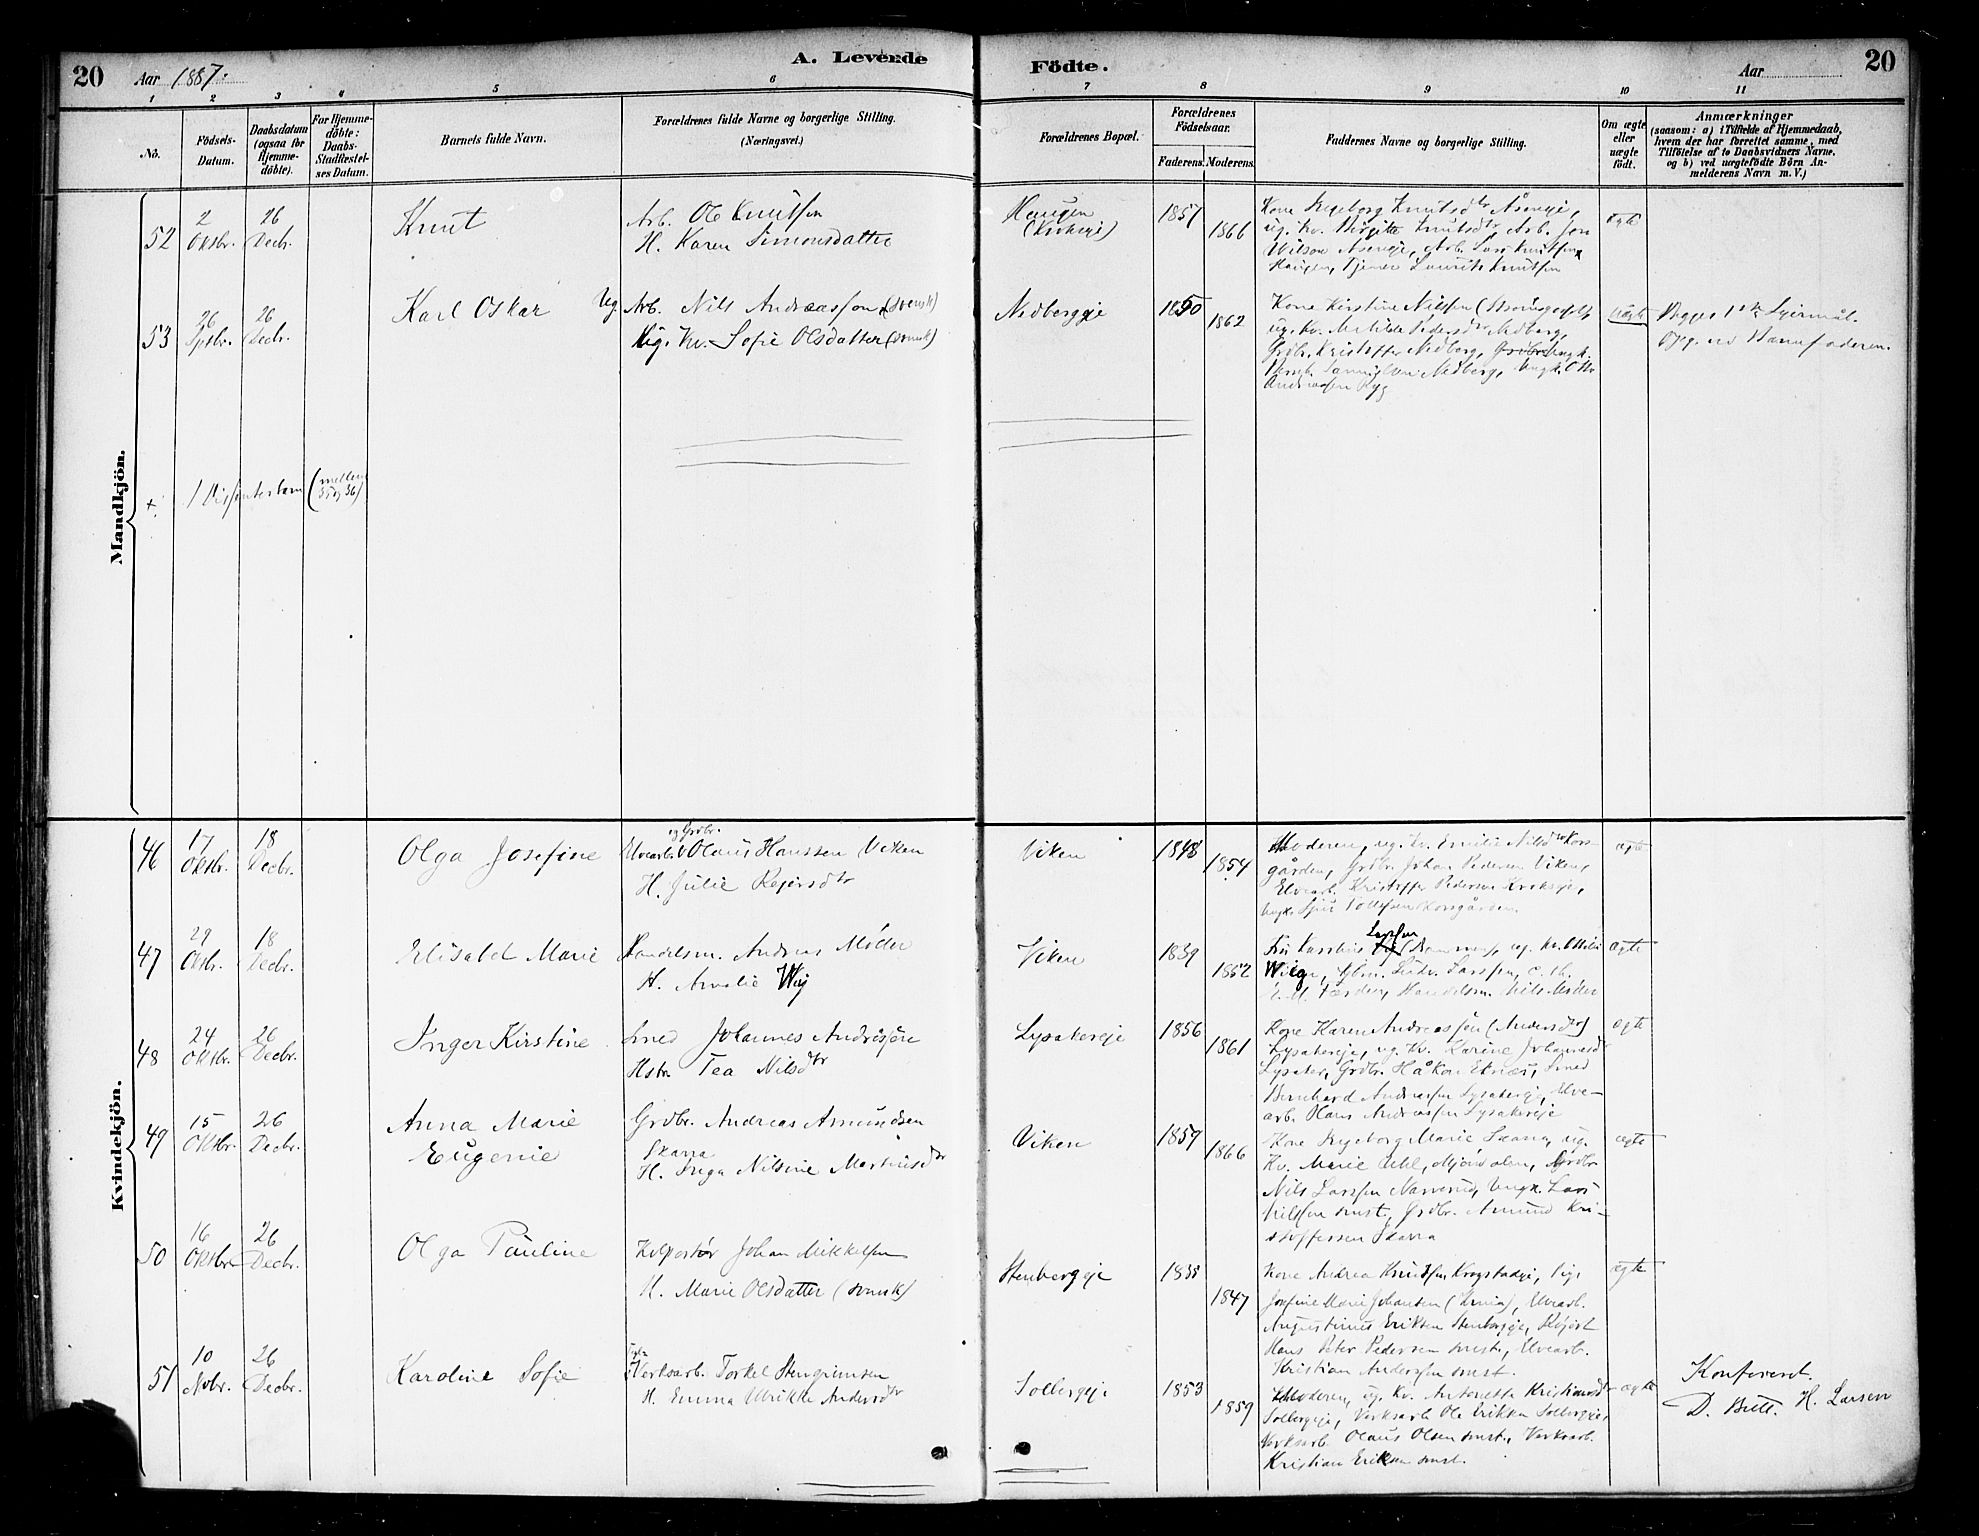 20 Aar 1887. A. Levende Födte. Aar 20
1 2 3 4 5 6 7 8 9 10 11
No.
Födsels-
Datum.
Daabsdatum
(ogsaa for
Hjemme-
döbte).
For Hjemme-
döbte:
Daabs-
Stadfæstel-
ses Datum.
Barnets fulde Navn.
Forældrenes fulde Navne og borgerlige Stilling.
(Næringsvei.)
Forældrenes Bopæl.
Forældrenes
Födselsaar.
Faderens. Moderens.
Faddernes Navne og borgerlige Stilling.
Om ægte
eller
uægte
födt.
Anmærkninger
(saasom: a) i Tilfælde af Hjemmedaab,
hvem der har forrettet samme, med
Tilföielse af to Daabsvidners Navne,
og b) ved uægtefödte Börn An-
melderens Navn m. V.)
Mandkjön.
52
2
Oktbr.
26
Decbr.
Knut
Arb. Ole Knutsen
H. Karen Simonsdatter
Haugen
1857
1866
Kone Ingeborg Knutsdtr Åseneje,
ug. kv. Birgitte Knutsdtr, Arb. Jon
Arb. Lars Knutsen
Haugen, Tjener Laurits Knutsen
ægte
53
26
Sptbr.
26
Decbr.
Karl Oskar
Ug. Arb. Nils Andreassen (svensk)
Ug. Kv. Sofie Olsdatter (svensk)
Nedbergeje
1850
1862
Kone Kirstine Nilsen
ug. kv. Matilde Pedersdtr Nedberg,
Grdbr. Kristoffer Nedberg, Ungk.
Nedberg, Ungk. Otto
Andreassen
uægte
Begges 1ste Lejermål.
Opg. ved Barnefaderen.
+ 1 Dissenterbarn (mellem
35 og 36)
Kvindekjön.
46
17
Oktbr.
18
Decbr.
Olga Josefine
og Grdbr.
Elvearb. Olaus Hanssen Viken
H. Julie Rejersdtr
Viken
1848
1854
Moderen, ug. kv. Emilie Nilsdtr Kors-
gården, Grdbr. Johan Pedersen Viken,
Elvearb. Kristoffer Pedersen Krokseje,
Korsgården.
ægte
47
29
Oktbr.
18
Decbr.
Elisabet Marie
Handelsm. Andreas Moder
H. Amalie Wiig
Viken
1839
1852
Larssen
Larssen, c. th.
Handelsm. Nils Moder
ægte
48
24
Oktbr.
26
Decbr.
Inger Kirstine
Smed Johannes Andreassen
Hstr. Tea Nilsdtr
Lysakereje
1856
1861
Kone Karen Andreassen (Andersdtr)
Lysakereje, ug. Kv. Karine Johannesdtr
Lysaker, Grdbr. Håkon Eknæs, Smed
Bernhard Andreassen Lysakereje, Elve-
arb. Hans Andreassen Lysakereje
ægte
49
15
Oktbr.
26
Decbr.
Anna Marie
Eugenie
Grdbr. Andreas Amundsen
Skarra
H. Inga Nilsine Martinusdtr
Viken
1859
1866
Kone Ingeborg Marie Skarra, ug.
Kv. Marie Uhl, Grdbr.
Nils Larssen Narverud, Ungk. Lars
Nilssen smst., Grdbr. Amund Kri-
stoffersen Skarra
ægte
50
16
Oktbr.
26
Decbr.
Olga Pauline
Kolportør Johan Mikkelsen
H. Marie Olsdatter (svensk)
Stenbergeje
1838
1847
Kone Andrea Knudsen Krogstadeje, Pig.
Josefine Marie Johansen, Elvearb.
Augustinus Eriksen Stenbergeje,
Hans Peter Pedersen smst., Elvearb.
Kristian Anderssen smst.
ægte
51
10
Novbr.
26
Decbr.
Karoline Sofie
Verksarb. Torkel Stengrimsen
H. Emma Ulrikke Andersdtr
Solbergeje
1853
1859
Moderen, ug. Kv. Antonette Kristiansdtr
Solbergeje, Verksarb. Ole Eriksen Solbergeje,
Verksarb. Olaus Olsen smst., Verksarb.
Kristian Eriksen smst.
ægte
Konfereret.
D. Bull. H. Larsen